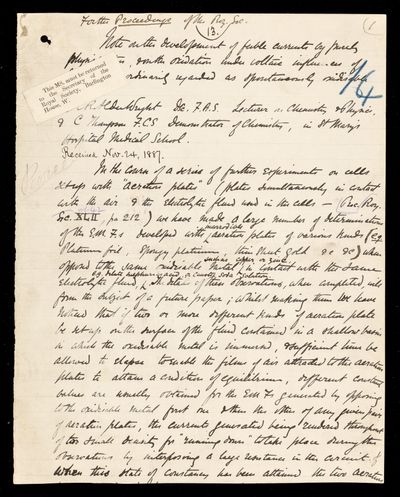 For the Proceedings of the Roy. Soc.
(1
13.
Note on the development of feeble currents by purely
physical action, & on the oxidation under voltaic influences of
ordinarily regarded as spontaneously oxidisable
This MS. must be returned
to the Secretary of the
Royal Society, Burlington
House, W.
C. R. Alder Wright D.Sc. F.R.S. Lecturer on Chemistry & Physics,
& C. Thompson F.C.S. Demonstrator of Chemistry, in St Mary's
Hospital Medical School.
Received Nov. 24, 1887.
In the course of a series of further experiments on cells
set up with "aeration plates" (plates simultaneously in contact
with the air & the electrolytic fluid used in the cells — Proc. Roy.
Soc. XLII, pa 212) we have made a large number of determinations
of the E.M.Fs. developed with aeration plates of various kinds (e.g.
Platinum foil, spongy platinum, thin sheet gold &c &c) when
opposed to the same oxidisable metal in contact with the same
electrolytic fluid, The details of these observations, when completed, will
form the subject of a future paper; whilst making them we have
noticed that if two or more different kinds of aeration plate
be set up on the surface of the fluid contained in a shallow basin
in which the oxidisable metal is immersed, & sufficient time be
allowed to elapse to enable the films of air attracted to the aeration
plates to attain a condition of equilibrium, different constant
values are usually obtained for the E.M.Fs generated by opposing
to the oxidisable metal first one & then the other of any given pair
of aeration plates, the currents generated being rendered throughout
of too small density for "running down" to take place during the
observations by interposing a large resistance in the circuit.
When this state of constancy has been attained the two aeration